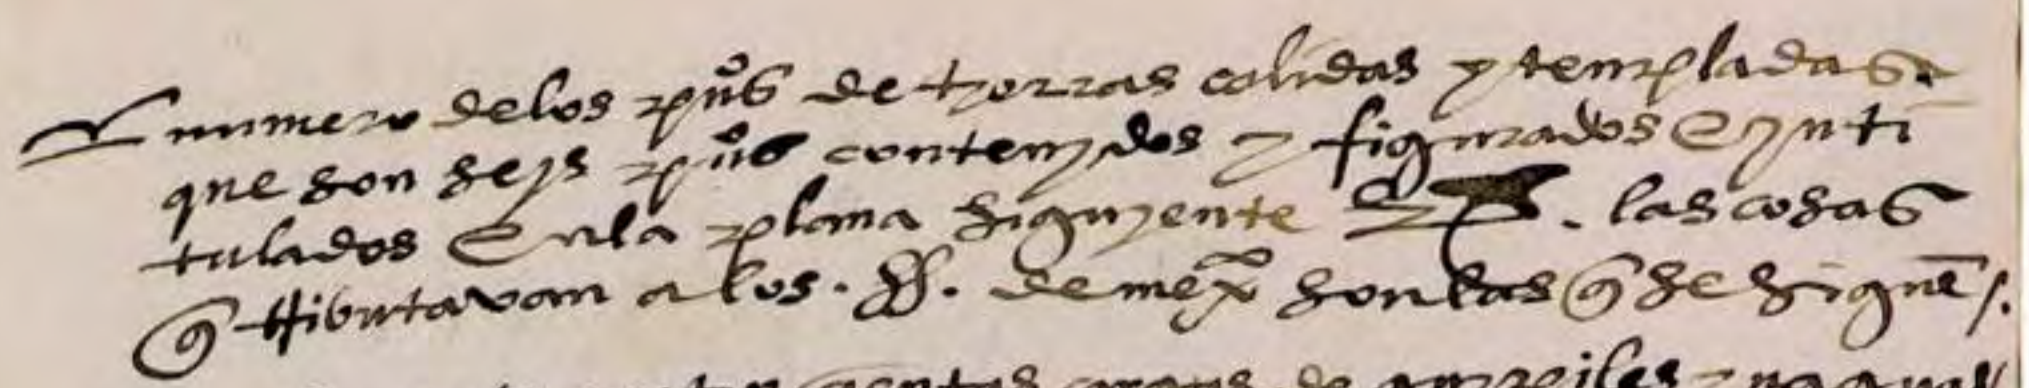 El numero de los pu͞os de tierras calidas y templadas.
que son seys pu͞os contenydos y figurados E ynti
tulados En la plana siguyente . las cosas
q̃ tributavan a los . SS. de mex͞co son las q̃ se siguẽ /.